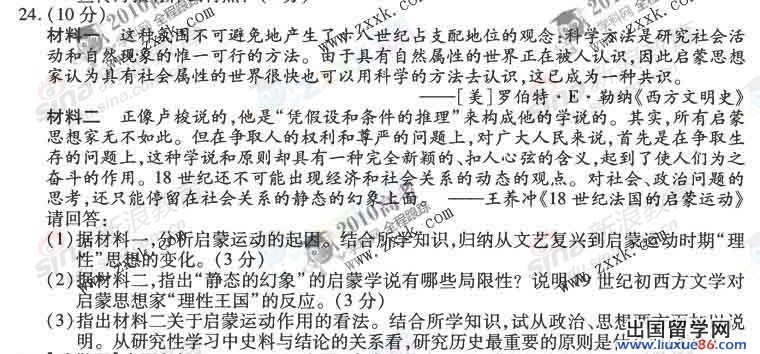 24.(10分)
材料一 这种氛围不可避免地产生了十八世纪占支配地位的观念:科学方法是研究社会活
动和自然现象的惟一可行的方法。由于具有自然属性的世界正在被人认识,因此启蒙思想
家认为具有社会属性的世界很快也可以用科学的方法去认识,这已成为一种共识。
——[美]罗伯特·E·勒纳《西方文明史》
材料二 正像卢梭说的,他是“凭假设和条件的推理”来构成他的学说的。其实,所有启蒙
思想家无不如此。但在争取人的权利和尊严的问题上,对广大人民来说,首先是在争取生
存的问题上,这种学说和原则却具有一种完全新颖的、扣人心弦的含义,起到了使人们为之
奋斗的作用。18世纪还不可能出现经济和社会关系的动态的观点。对社会、政治问题的
思考,还只能停留在社会关系的静态的幻象上面。 ——王养冲《18世纪法国的启蒙运动》
请回答:
(1)据材料一,分析启蒙运动的起因。结合所学知识,归纳从文艺复兴到启蒙运动时期“理
性”思想的变化。(3分)
(2)据材料二,指出“静态的幻象”的启蒙学说有哪些局限性?说明19世纪初西方文学对
启蒙思想家“理性王国”的反应。(3分)
(3)指出材料二关于启蒙运动作用的看法。结合所学知识,试从政治、思想两方面加以说
明。从研究性学习中史料与结论的关系看,研究历史最重要的原则是
出国留学网
www.liuxue86.com